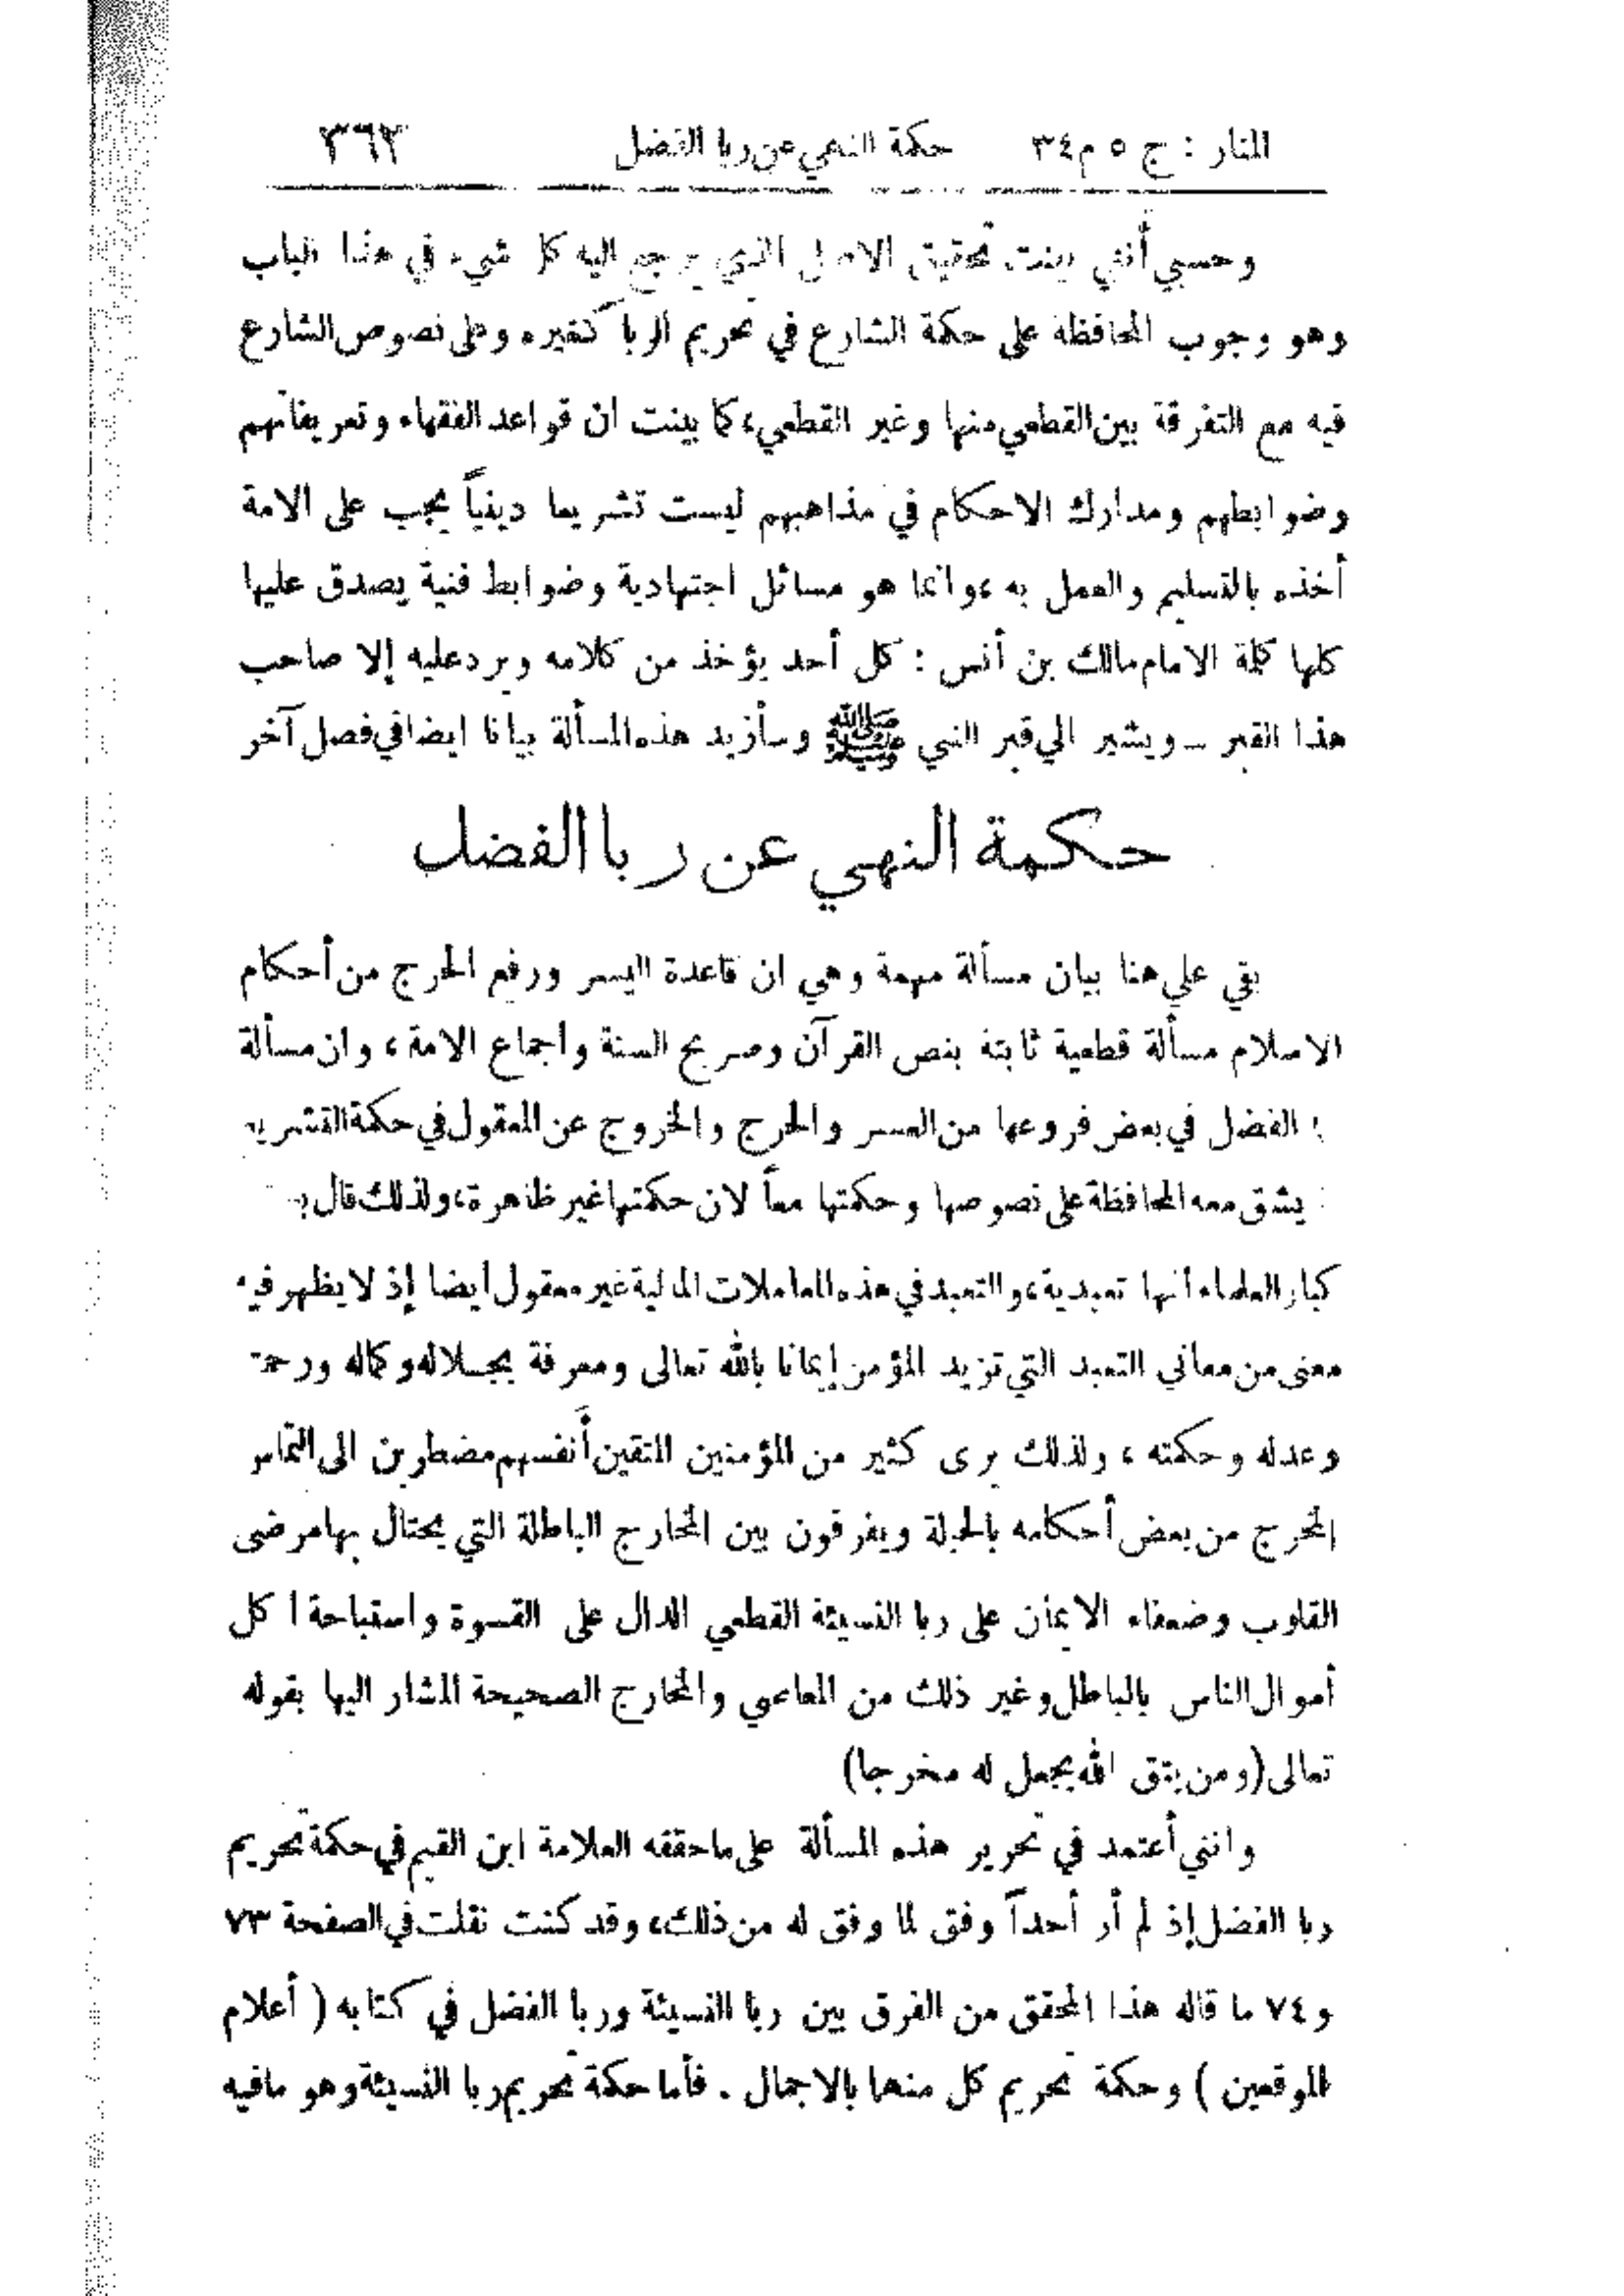 المنار : ج ٥ م ٣٤ حكمة النهي عن ربا الفضل ٣٦٣
وحسبي أنني بينت تحقيق الاصل الذي يرجع اليه كل شيء في هذا الباب
وهو وجوب المحافظة على حكمة الشارع في تحريم الربا كغيره وعلى نصوص الشارع
فيه مع التفرقة بين القطعي منها وغير القطعي، كما بينت ان قواعد الفقهاء وتعريفاتهم
وضوابطهم ومدارك الاحكام في مذاهبهم ليست تشريعا دينياً يجب على الامة
أخذه بالتسليم والعمل به، وانما هو مسائل اجتهادية وضوابط فنية يصدق عليها
كلها كلمة الامام مالك بن أنس : كل أحد يؤخذ من كلامه ويرد عليه إلا صاحب
هذا القبر ــ ويشير الي قبر النبي ﷺ وسأزيد هذه المسألة بيانا ايضا في فصل آخر
حكمة النهي عن ربا الفضل
بقي علي هنا بيان مسألة مهمة وهي ان قاعدة اليسر ورفع الحرج من أحكام
الاسلام مسألة قطعية ثابتة بنص القرآن وصريح السنة واجماع الامة، وان مسألة
الفضل في بعض فروعها من العسر والحرج والخروج عن المعقول في حكمة
يشق معه المحافظة على نصوصها وحكمتها معاً لان حكمتها غير ظاهرة، ولذلك قال
كبار العلماء انها تعبدية، والتعبد في هذه المعاملات المالية غير معقول أيضا إذ لا يظهر فيه
معنى من معاني التعبد التي تزيد المؤمن إيمانا بالله تعالى ومعرفة بجلاله وكماله
وعدله وحكمته ، ولذلك يرى كثير من المؤمنين المتقين أنفسهم مضطرين الى التماس
المخرج من بعض أحكامه بالحيلة ويفرقون بين المخارج الباطلة التي يحتال بها مرضى
القلوب وضعفاء الايمان على ربا النسيئة القطعي الدال على القسوة واستباحة اكل
أموال الناس بالباطل وغير ذلك من المعاصي والمخارج الصحيحة المشار اليها بقوله
تعالى (ومن يتق الله يجعل له مخرجا)
وانني أعتمد في تحرير هذه المسألة على ما حققه العلامة ابن القيم في حكمة تحريم
ربا الفضل إذ لم أر أحداً وفق لما وفق له من ذلك، وقد كنت نقلت في الصفحة ٧٣
و ٧٤ ما قاله هذا المحقق من الفرق بين ربا النسيئة وربا الفضل في كتابه ( أعلام
الموقعين ) وحكمة تحريم كل منها بالاجمال . فأما حكمة تحريم ربا النسيئة وهو ما فيه